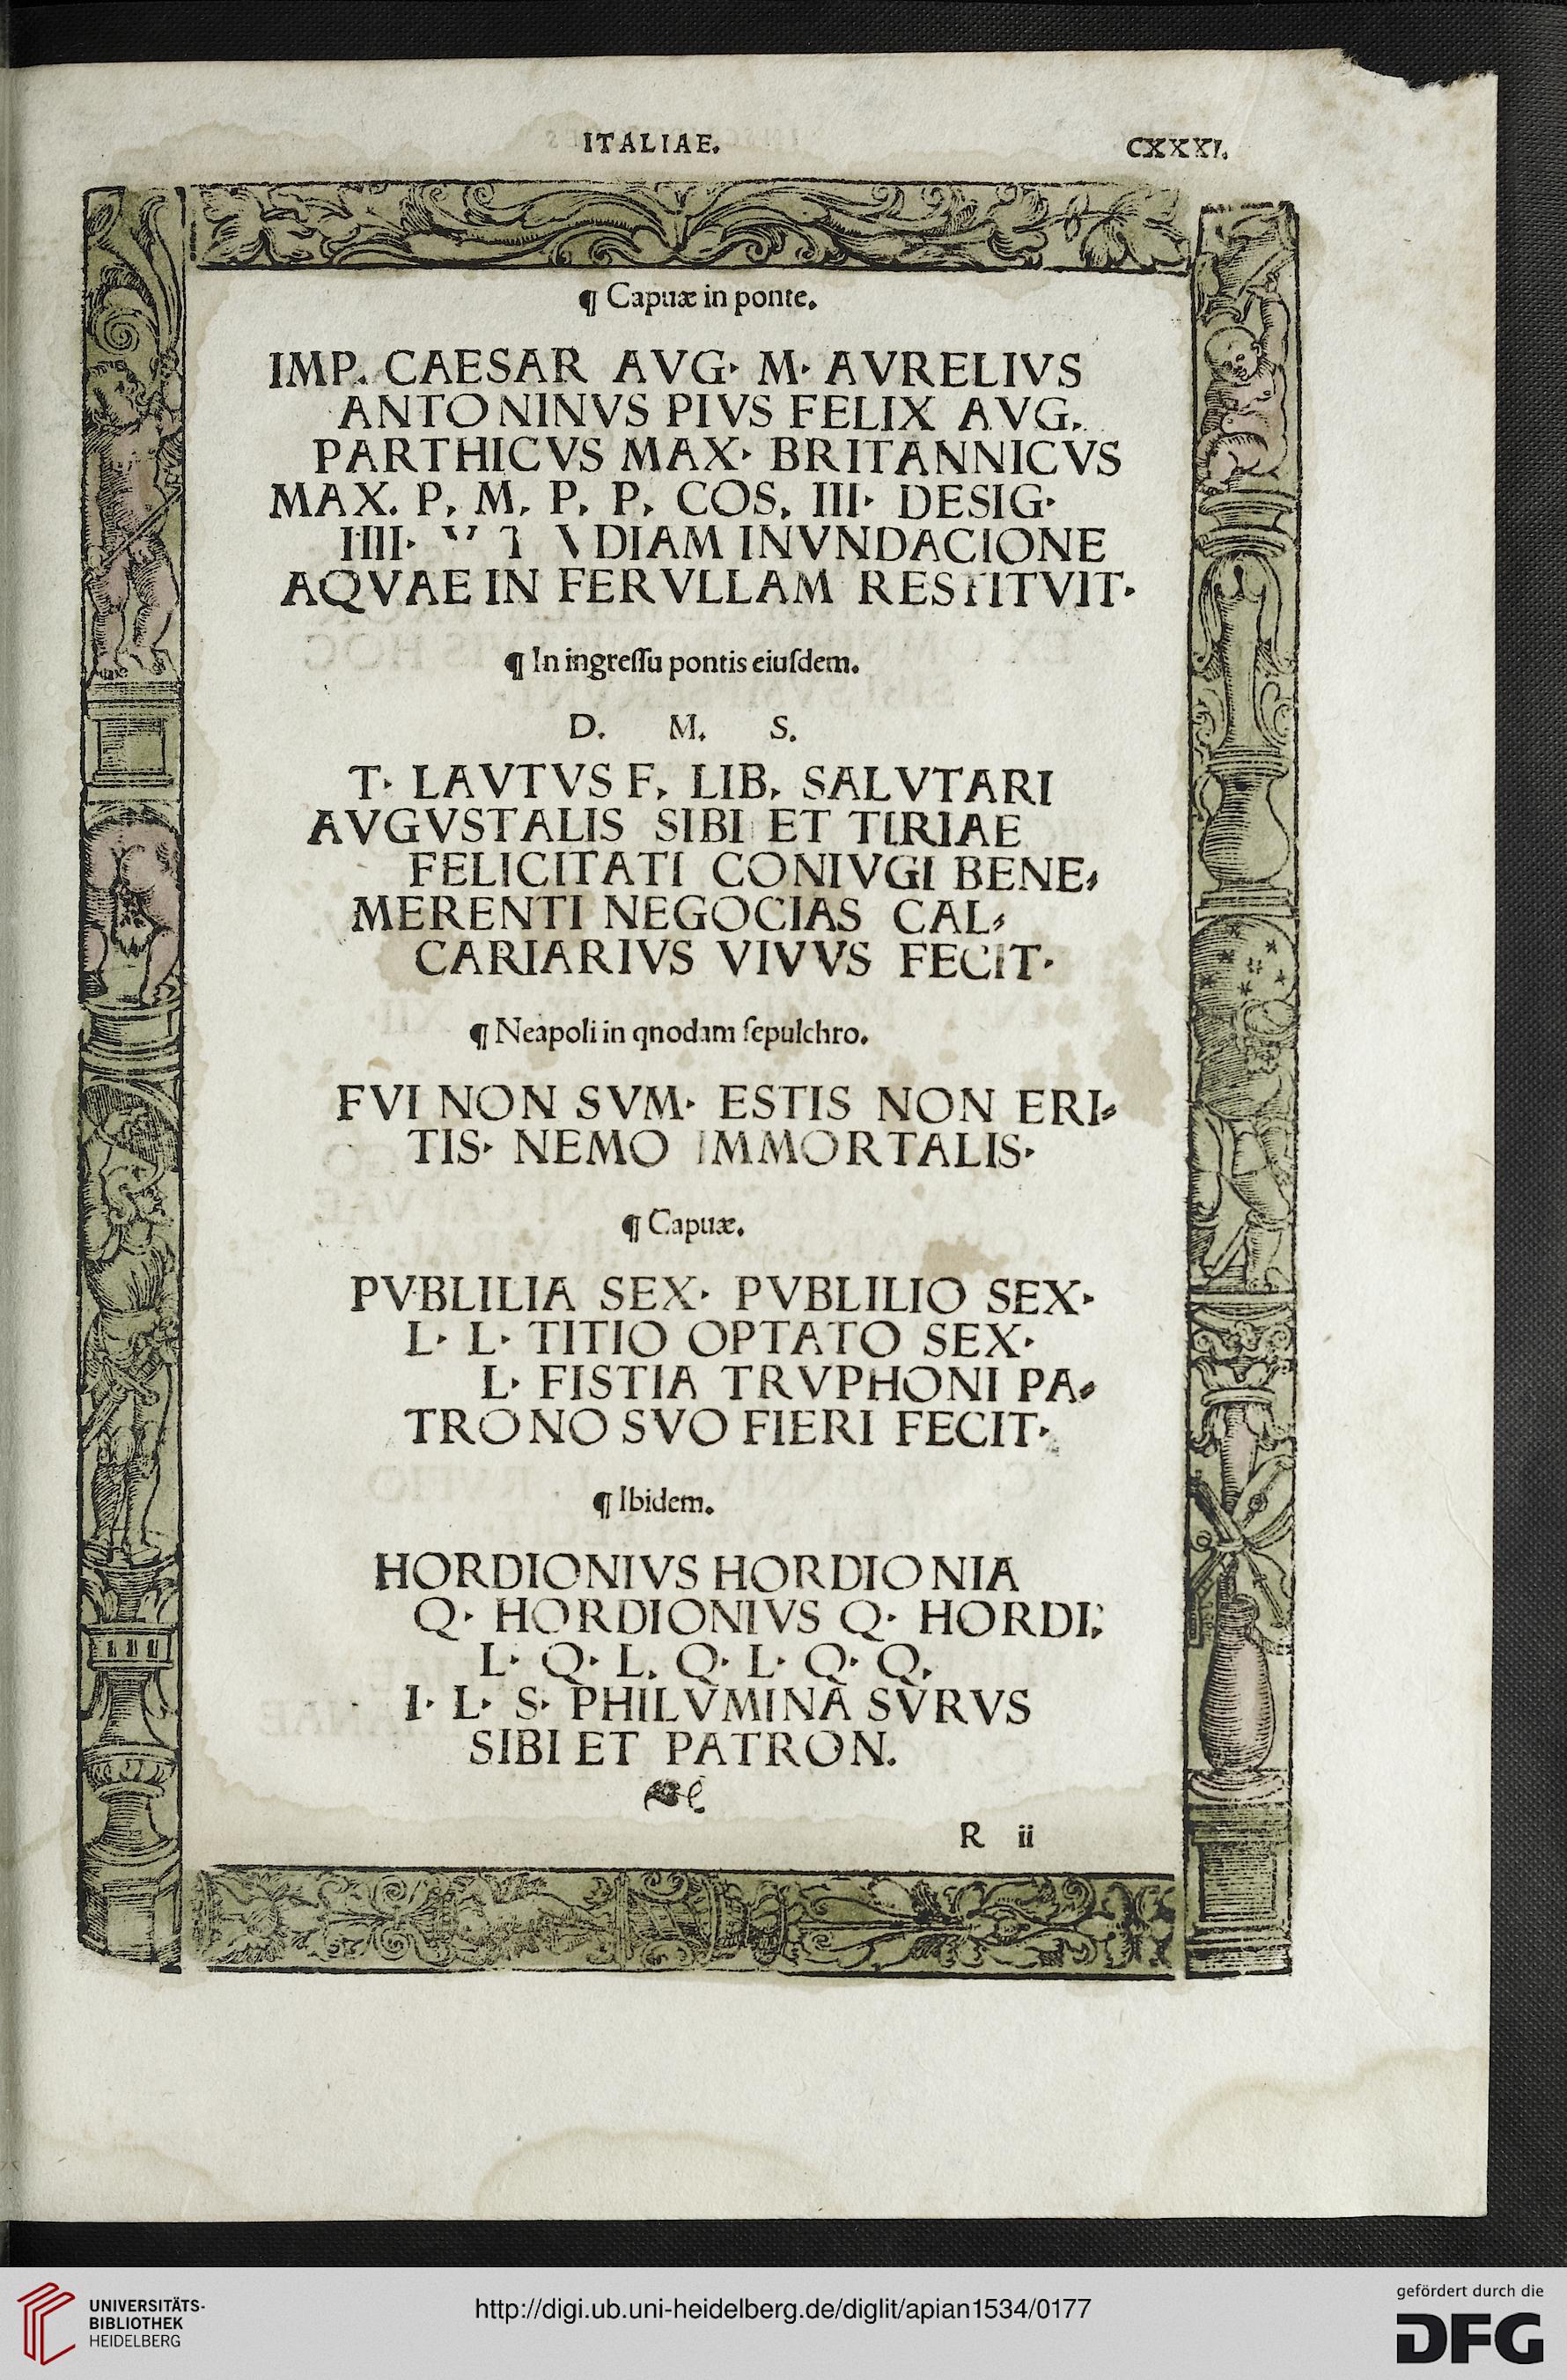 ITALIAE. CXXXI.
¶ Capuæ in ponte.
IMP. CAESAR AVG· M· AVRELIVS
ANTONINVS PIVS FELIX AVG.
PARTHICVS MAX· BRITANNICVS
MAX. P, M, P, P, COS, III· DESIG·
IIII· DIAM INVNDACIONE
AQVAE IN FERVLLAM RESTITVIT·
¶ In ingreſſu pontis eiuſdem.
D. M. S.
T· LAVTVS F, LIB, SALVTARI
AVGVSTALIS SIBI ET TIRIAE
FELICITATI CONIVGI BENE⸗
MERENTI NEGOCIAS CAL⸗
CARIARIVS VIVVS FECIT·
¶ Neapoli in qnodam ſepulchro.
FVI NON SVM· ESTIS NON ERI⸗
TIS· NEMO IMMORTALIS·
¶ Capuæ.
PVBLILIA SEX· PVBLILIO SEX·
L· L· TITIO OPTATO SEX·
L· FISTIA TRVPHONI PA⸗
TRONO SVO FIERI FECIT·
¶ Ibidem.
HORDIONIVS HORDIONIA
Q· HORDIONIVS Q· HORDI;
L· Q· L. Q· L· Q· Q.
I· L· S· PHILVMINA SVRVS
SIBI ET PATRON.
R ii
UNIVERSITÄTS-
BIBLIOTHEK
HEIDELBERG
http://digi.ub.uni-heidelberg.de/diglit/apian1534/0177
gefördert durch die
DFG